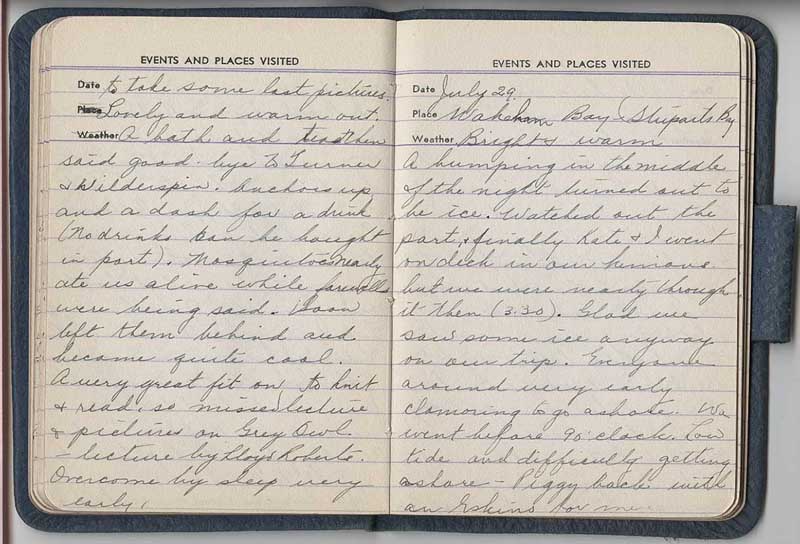 EVENTS AND PLACES VISITED
Date to take some last pictures.
Place Lovely and warm out.
Weather A bath and then
said good-bye to Turner
& Wilderspin. Anchors up
and a dash for a drink
(No drinks can be bought
in port). Mosquitoes nearly
ate us alive while farewells
were being said. Soon
left them behind and
became quite cool.
A very great fit on to knit
& read, so missed lecture
& pictures on Grey Owl.
- lecture by Lloyd Roberts.
Overcome by sleep very
early.
EVENTS AND PLACES VISITED
Date July 29.
Place Wakeham Bay (Stuparts Bay
Weather Bright & warm
A bumping in the middle
of the night turned out to
be ice. Watched out the
port, & finally Kate & I went
on deck in our kimonos
but we were nearly through
it then (3.30). Glad we
saw some ice anyway
on our trip. Everyone
around very early
clamoring to go ashore. We
went before 9 o'clock. Low
tide and difficulty getting
ashore - Piggy back with
an Eskimo for me.